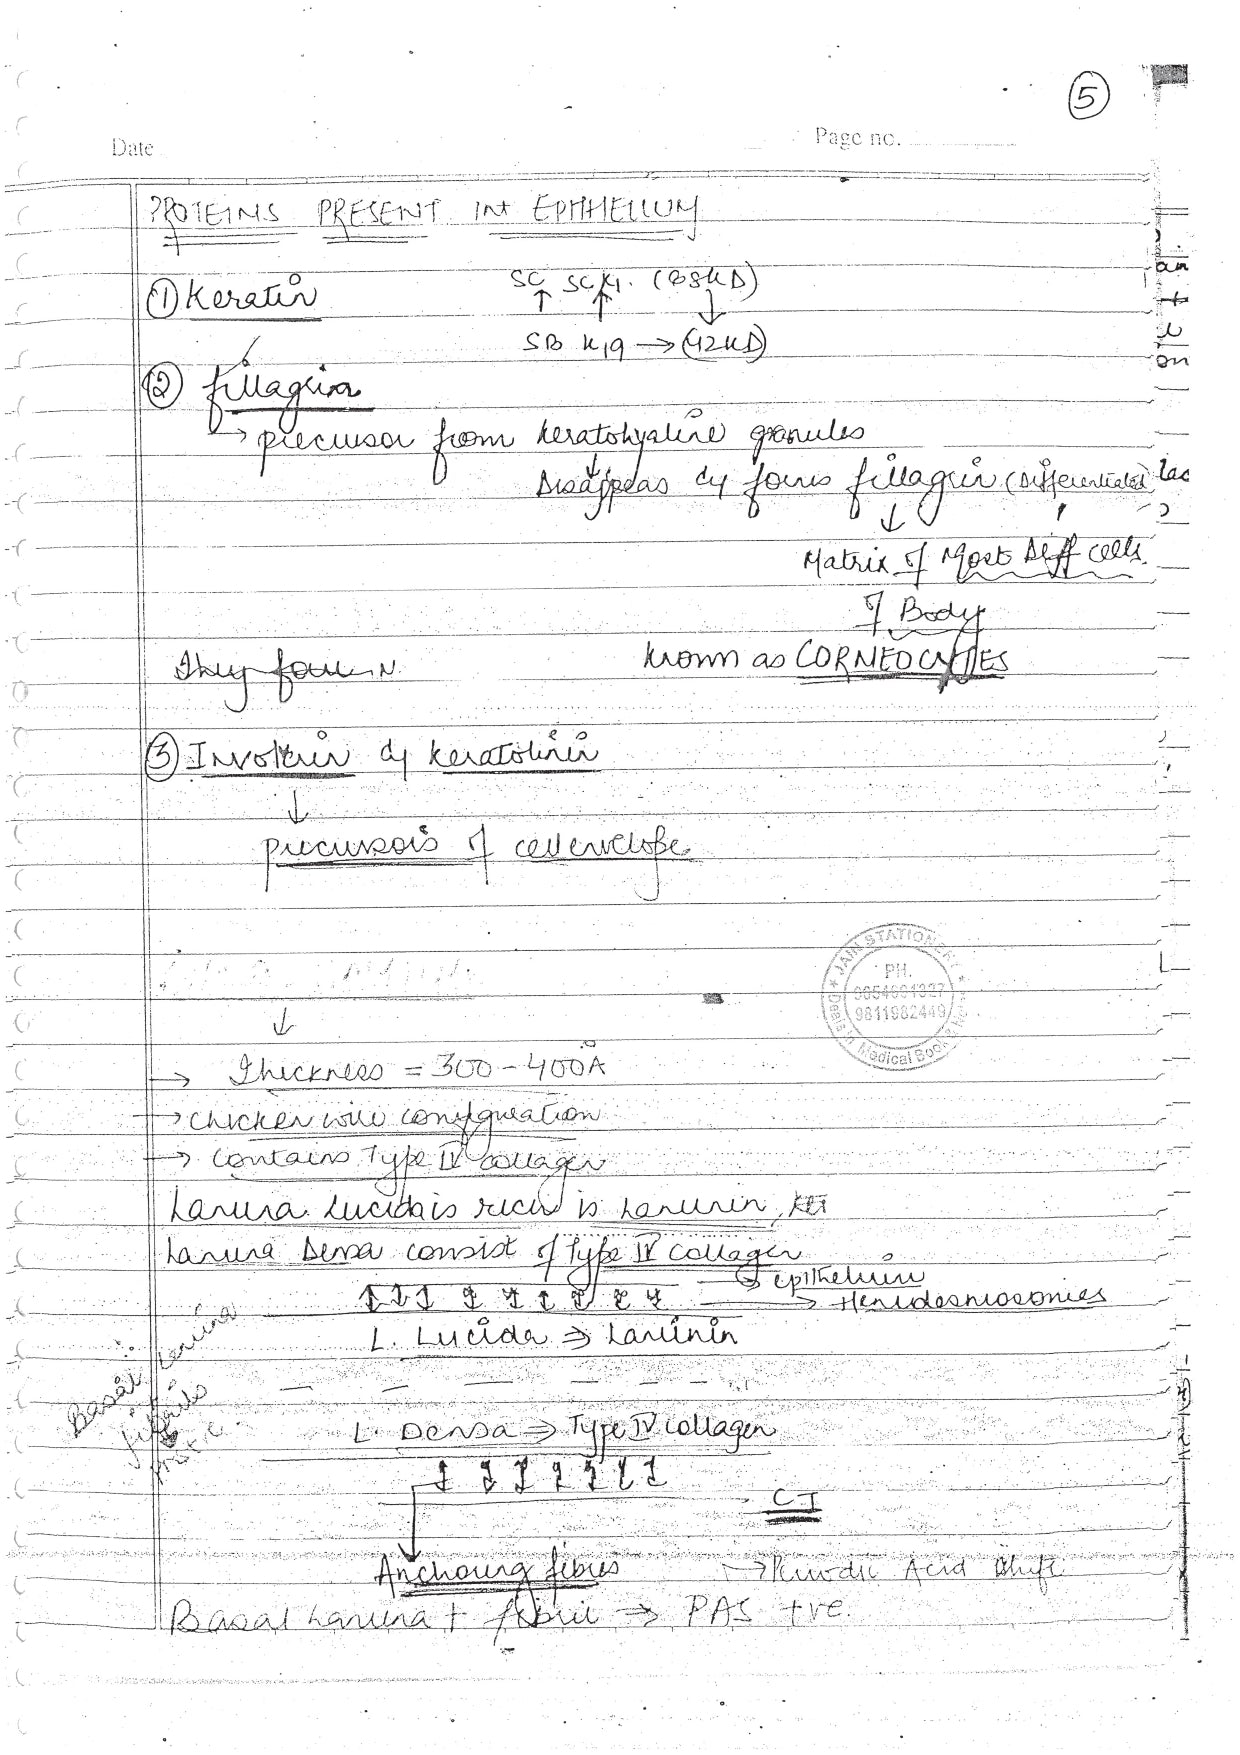 5
Date
Page no.
PROTEINS PRESENT INt EPITHELIUM
① Keratin
SC SCK1. (68KD)
SB K19 → (42KD)
② fillagrin
→ precursor from keratohyaline granules
Disappears & forms fillagrin (Differentiated
Matrix of Most Diff cells
of Body
known as CORNEOCYTES
They form N
③ Involkrin & keratolinin
↓
precursors of cell envelope
JAIN STATIONERY
PH.
9811982449
Medical Book
↓
→ Thickness = 300-400Å
→ Chicken wire configuration
→ Contains Type IV collagen
Lamina Lucida is rich is Laminin,
Lamina Densa consist of Type IV Collagen
→ epithelium
→ Hemidesmosomies
L. Lucida ⇒ Laminin
Basal Lamina
L. Densa ⇒ Type IV collagen
CT
Anchoring fibres
→ Periodic Acid Shiff
Basal Lamina + fibril → PAS +ve.